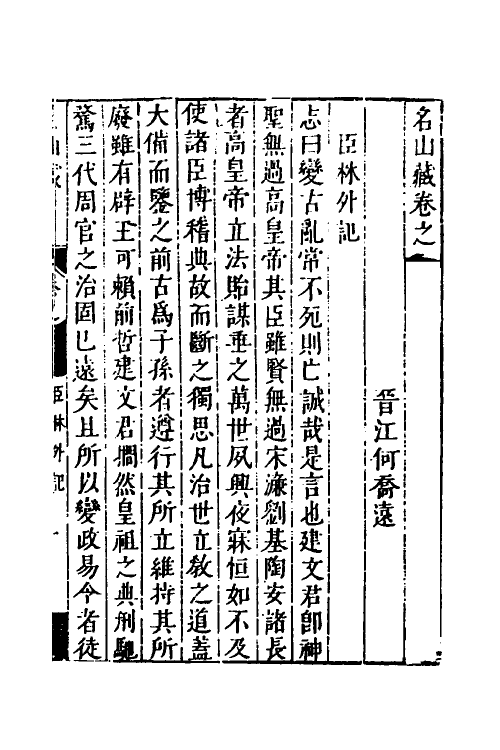 名山藏卷之
晉江何喬遠
臣林外記
志曰變古亂常不死則亡誠哉是言也建文君卽神
聖無過高皇帝其臣雖賢無過宋濂劉基陶安諸長
者高皇帝立法貽謀垂之萬世夙興夜寐恒如不及
使諸臣博稽典故而斷之獨思凡治世立教之道蓋
大備而鑒之前古爲子孫者遵行其所立維持其所
廢雖有辟王可賴前哲建文君擱然皇祖之典刑馳
騖三代周官之治固已遠矣且所以變政易令者徒
臣林外記